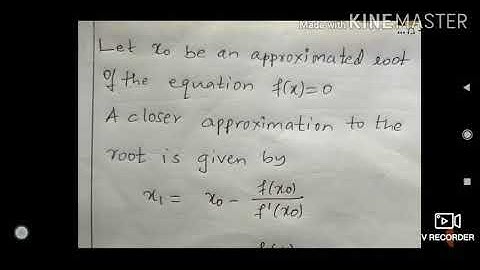 Made with KINEMASTER
Let x₀ be an approximated root
Of the equation f(x)=0
A closer approximation to the
root is given by
x₁ = x₀ - f(x₀)/f'(x₀)
V RECORDER